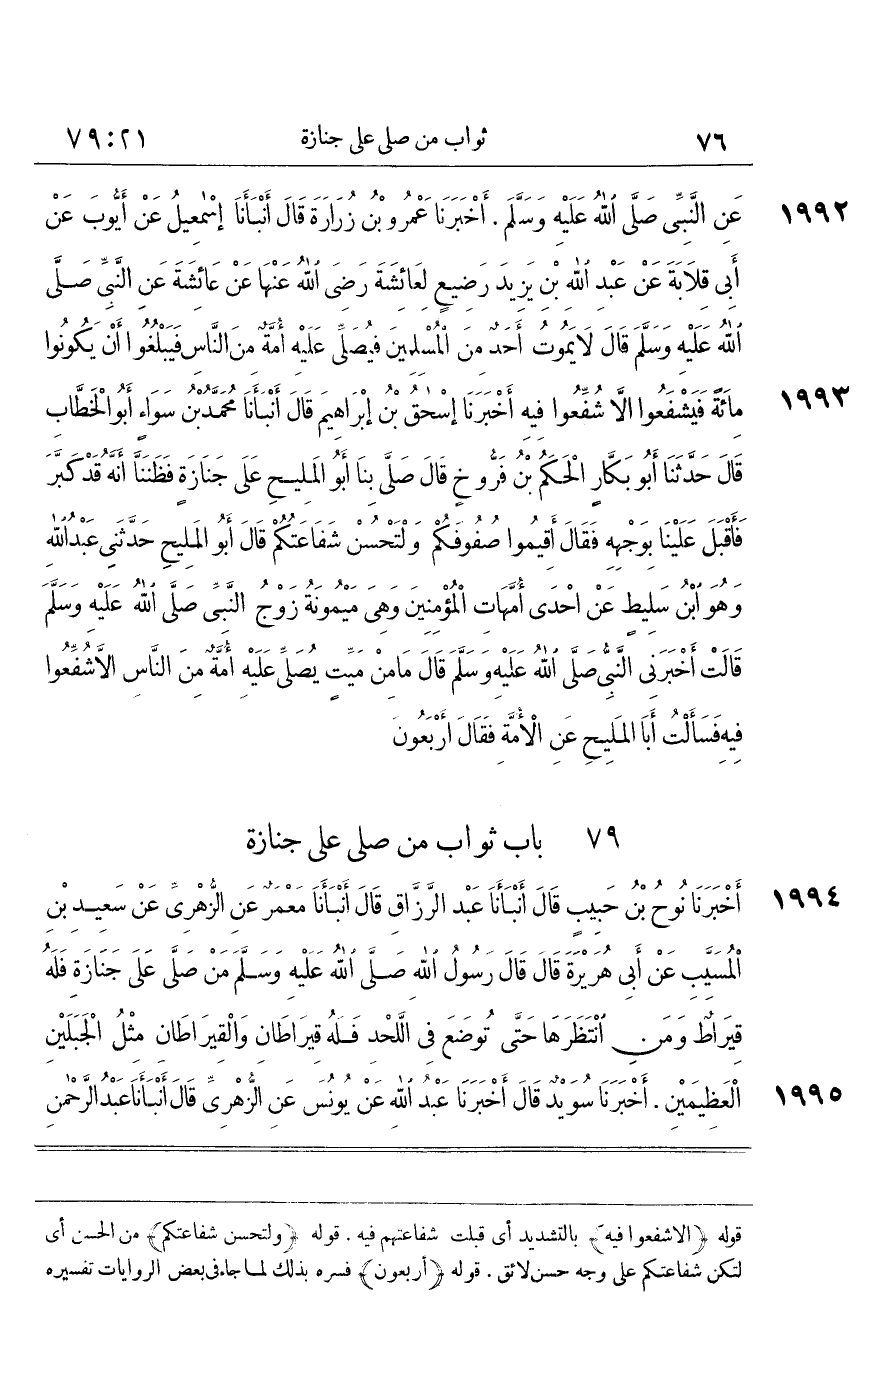 ٧٦ ثواب من صلى على جنازة ٢١ : ٧٩
١٩٩٢ عَنِ النَّبِيِّ صَلَّى اللهُ عَلَيْهِ وَسَلَّمَ . أَخْبَرَنَا عَمْرُو بْنُ زُرَارَةَ قَالَ أَنْبَأَنَا إِسْمٰعِيلُ عَنْ أَيُّوبَ عَنْ
أَبِي قِلَابَةَ عَنْ عَبْدِ اللهِ بْنِ يَزِيدَ رَضِيعٍ لِعَائِشَةَ رَضِيَ اللهُ عَنْهَا عَنْ عَائِشَةَ عَنِ النَّبِيِّ صَلَّى
اللهُ عَلَيْهِ وَسَلَّمَ قَالَ لَا يَمُوتُ أَحَدٌ مِنَ الْمُسْلِمِينَ فَيُصَلِّيَ عَلَيْهِ أُمَّةٌ مِنَ النَّاسِ فَيَبْلُغُوا أَنْ يَكُونُوا
١٩٩٣ مِائَةً فَيَشْفَعُوا الَّا شُفِّعُوا فِيهِ أَخْبَرَنَا إِسْحٰقُ بْنُ إِبْرَاهِيمَ قَالَ أَنْبَأَنَا مُحَمَّدُ بْنُ سَوَاءٍ أَبُو الْخَطَّابِ
قَالَ حَدَّثَنَا أَبُو بَكَّارٍ الْحَكَمُ بْنُ فَرُّوخٍ قَالَ صَلَّى بِنَا أَبُو الْمَلِيحِ عَلَى جَنَازَةٍ فَظَنَنَّا أَنَّهُ قَدْ كَبَّرَ
فَأَقْبَلَ عَلَيْنَا بِوَجْهِهِ فَقَالَ أَقِيمُوا صُفُوفَكُمْ وَلْتَحْسُنْ شَفَاعَتُكُمْ قَالَ أَبُو الْمَلِيحِ حَدَّثَنِي عَبْدُ اللهِ
وَهُوَ ابْنُ سَلِيطٍ عَنْ احْدَى أُمَّهَاتِ الْمُؤْمِنِينَ وَهِيَ مَيْمُونَةُ زَوْجُ النَّبِيِّ صَلَّى اللهُ عَلَيْهِ وَسَلَّمَ
قَالَتْ أَخْبَرَنِي النَّبِيُّ صَلَّى اللهُ عَلَيْهِ وَسَلَّمَ قَالَ مَا مِنْ مَيِّتٍ يُصَلِّي عَلَيْهِ أُمَّةٌ مِنَ النَّاسِ الَّا شُفِّعُوا
فِيهِ فَسَأَلْتُ أَبَا الْمَلِيحِ عَنِ الْأُمَّةِ فَقَالَ أَرْبَعُونَ
٧٩ باب ثواب من صلى على جنازة
١٩٩٤ أَخْبَرَنَا نُوحُ بْنُ حَبِيبٍ قَالَ أَنْبَأَنَا عَبْدُ الرَّزَّاقِ قَالَ أَنْبَأَنَا مَعْمَرٌ عَنِ الزُّهْرِيِّ عَنْ سَعِيدِ بْنِ
الْمُسَيَّبِ عَنْ أَبِي هُرَيْرَةَ قَالَ قَالَ رَسُولُ اللهِ صَلَّى اللهُ عَلَيْهِ وَسَلَّمَ مَنْ صَلَّى عَلَى جَنَازَةٍ فَلَهُ
قِيرَاطٌ وَمَنِ انْتَظَرَهَا حَتَّى تُوضَعَ فِي اللَّحْدِ فَلَهُ قِيرَاطَانِ وَالْقِيرَاطَانِ مِثْلُ الْجَبَلَيْنِ
١٩٩٥ الْعَظِيمَيْنِ . أَخْبَرَنَا سُوَيْدٌ قَالَ أَخْبَرَنَا عَبْدُ اللهِ عَنْ يُونُسَ عَنِ الزُّهْرِيِّ قَالَ أَنْبَأَنَا عَبْدُ الرَّحْمٰنِ
قوله ﴿الا شفعوا فيه﴾ بالتشديد أى قبلت شفاعتهم فيه . قوله ﴿ولتحسن شفاعتكم﴾ من الحسن أى
لتكن شفاعتكم على وجه حسن لائق . قوله ﴿أربعون﴾ فسره بذلك لما جاء فى بعض الروايات تفسيره